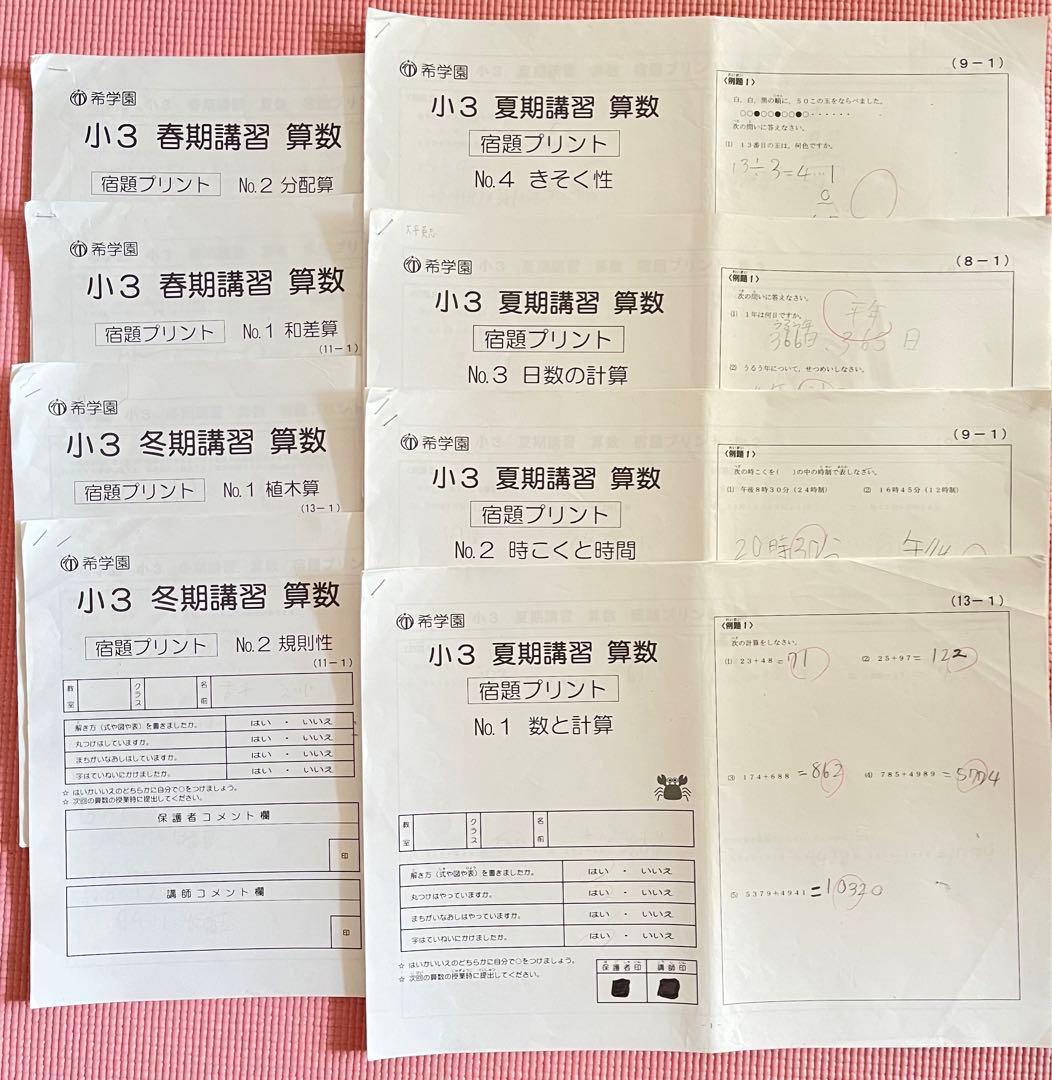 希学園
小3 春期講習 算数
宿題プリント No.2 分配算
希学園
小3 春期講習 算数
宿題プリント No.1 和差算
(11-1)
希学園
小3 冬期講習 算数
宿題プリント No.1 植木算
(13-1)
希学園
小3 冬期講習 算数
宿題プリント No.2 規則性
(11-1)
教室 クラス 名前
解き方(式や図や表)を書きましたか。 はい ・ いいえ
丸つけはしていますか。 はい ・ いいえ
まちがいなおしはしていますか。 はい ・ いいえ
字はていねいにかけましたか。 はい ・ いいえ
☆ はいかいいえのどちらかに自分で○をつけましょう。
☆ 次回の算数の授業時に提出してください。
保護者コメント欄
印
講師コメント欄
印
希学園
小3 夏期講習 算数
宿題プリント
No.4 きそく性
(9-1)
〈例題1〉
白、白、黒の順に、50この玉をならべました。
○○●○○●○○●○・・・・・・
次の問いに答えなさい。
(1) 13番目の玉は、何色ですか。
13÷3=4…1
希学園
小3 夏期講習 算数
宿題プリント
No.3 日数の計算
(8-1)
〈例題1〉
次の問いに答えなさい。
(1) 1年は何日ですか。
平年
うるう年
366日 365 日
(2) うるう年について、せつめいしなさい。
希学園
小3 夏期講習 算数
宿題プリント
No.2 時こくと時間
(9-1)
〈例題1〉
次の時こくを( )の中の時制で表しなさい。
(1) 午後8時30分(24時制) (2) 16時45分(12時制)
20時30分
希学園
小3 夏期講習 算数
宿題プリント
No.1 数と計算
教室 クラス 名前
解き方(式や図や表)を書きましたか。 はい ・ いいえ
丸つけはやっていますか。 はい ・ いいえ
まちがいなおしはやっていますか。 はい ・ いいえ
字はていねいにかけましたか。 はい ・ いいえ
☆ はいかいいえのどちらかに自分で○をつけましょう。
☆ 次回の算数の授業時に提出してください。
保護者印 講師印
(13-1)
〈例題1〉
次の計算をしなさい。
(1) 23+48=71 (2) 25+97=122
(3) 174+688=862 (4) 785+4989=5774
(5) 5379+4941=10320
-1-